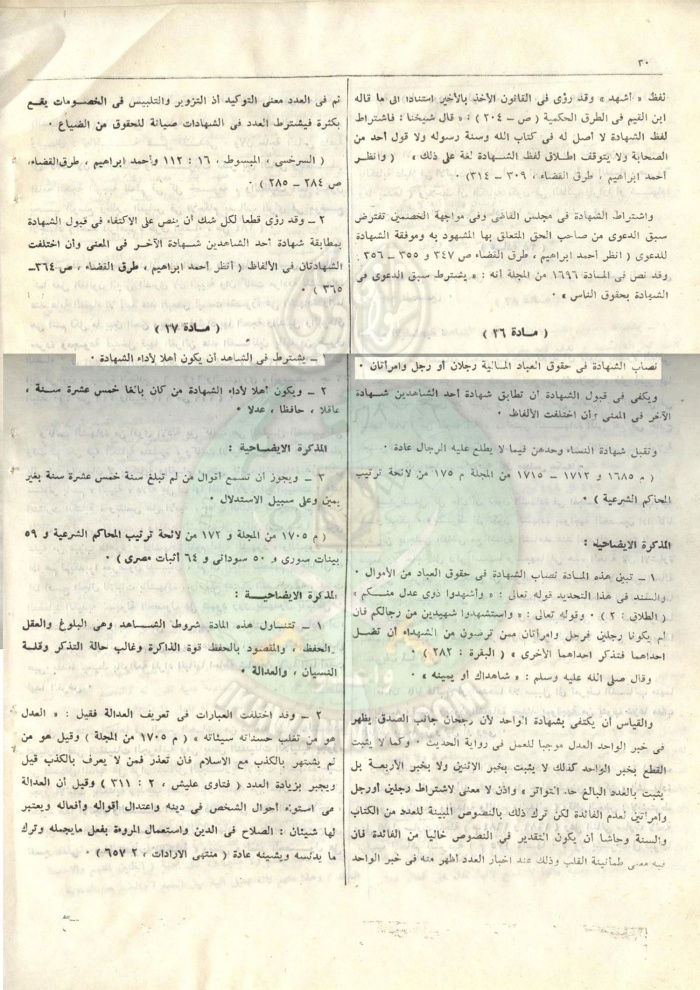 ٣٠
لفظ « أشهد » وقد رؤى فى القانون الأخذ بالأخير استنادا الى ما قاله
ابن القيم فى الطرق الحكمية ( ص – ٢٠٤ ) : « قال شيخنا : فاشتراط
لفظ الشهادة لا أصل له فى كتاب الله وسنة رسوله ولا قول أحد من
الصحابة ولا يتوقف اطلاق لفظ الشهادة لغة على ذلك » ( وانظر
أحمد ابراهيم ، طرق القضاء ، ٣٠٩ – ٣١٤ )
واشتراط الشهادة فى مجلس القاضى وفى مواجهة الخصمين تفترض
سبق الدعوى من صاحب الحق المتعلق بها المشهود به وموفقة الشهادة
للدعوى ( انظر أحمد ابراهيم ، طرق القضاء ص ٣٤٧ و ٣٥٥ – ٣٥٦
وقد نص فى المادة ١٦٩٦ من المجلة أنه : « يشترط سبق الدعوى فى
الشهادة بحقوق الناس »
( مادة ٢٦ )
نصاب الشهادة فى حقوق العباد المالية رجلان أو رجل وامرأتان ٠
ويكفى فى قبول الشهادة أن تطابق شهادة أحد الشاهدين شهادة
الآخر فى المعنى وأن اختلفت الألفاظ ٠
وتقبل شهادة النساء وحدهن فيما لا يطلع عليه الرجال عادة ٠
( م ١٦٨٥ و ١٧١٢ – ١٧١٥ من المجلة م ١٧٥ من لائحة ترتيب
المحاكم الشرعية ) ٠
المذكرة الايضاحية :
١ – تبين هذه المادة نصاب الشهادة فى حقوق العباد من الأموال ٠
والسند فى هذا التحديد قوله تعالى : « وأشهدوا ذوى عدل منكم »
( الطلاق : ٢ ) ٠ وقوله تعالى : « واستشهدوا شهيدين من رجالكم فان
لم يكونا رجلين فرجل وامرأتان ممن ترضون من الشهداء أن تضل
احداهما فتذكر احداهما الأخرى » ( البقرة : ٢٨٢ ) ٠
وقال صلى الله عليه وسلم : « شاهداك أو يمينه » ٠
والقياس أن يكتفى بشهادة الواحد لأن رجحان جانب الصدق يظهر
فى خبر الواحد العدل موجبا للعمل فى رواية الحديث ٠ وكما لا يثبت
القطع بخبر الواحد كذلك لا يثبت بخبر الاثنين ولا بخبر الأربعة بل
يثبت بالعدد البالغ حد التواتر » واذن لا معنى لاشتراط رجلين أورجل
وامرأتين لعدم الفائدة لكن ترك ذلك بالنصوص المبينة للعدد من الكتاب
والسنة وحاشا أن يكون التقدير فى النصوص خاليا من الفائدة فان
فيه معنى طمأنينة القلب وذلك عند اخبار العدد أظهر منه فى خبر الواحد
ثم فى العدد معنى التوكيد أذ التزوير والتلبيس فى الخصومات يقع
بكثرة فيشترط العدد فى الشهادات صيانة للحقوق من الضياع ٠
( السرخسى ، المبسوط ، ١٦ : ١١٢ وأحمد ابراهيم ، طرق القضاء،
ص ٢٨٤ – ٢٨٥ ) ٠
٢ – وقد رؤى قطعا لكل شك أن ينص على الاكتفاء فى قبول الشهادة
بمطابقة شهادة أحد الشاهدين شهادة الآخر فى المعنى وأن اختلفت
الشهادتان فى الألفاظ ( أنظر أحمد ابراهيم ، طرق القضاء ، ص ٣٦٤–
٣٦٥ ) ٠
( مادة ٢٧ )
١ – يشترط فى الشاهد أن يكون أهلا لأداء الشهادة ٠
٢ – ويكون أهلا لأداء الشهادة من كان بالغا خمس عشرة سنة ،
عاقلا ، حافظا ، عدلا ٠
المذكرة الايضاحية :
٣ – ويجوز أن تسمع أقوال من لم تبلغ سنة خمس عشرة سنة بغير
يمين وعلى سبيل الاستدلال ٠
( م ١٧٠٥ من المجلة و ١٧٢ من لائحة ترتيب المحاكم الشرعية و ٥٩
بينات سورى و ٥٠ سودانى و ٦٤ أثبات مصرى ) ٠
المذكرة الايضاحية :
١ – تتناول هذه المادة شروط الشاهد وهى البلوغ والعقل
والحفظ ، والمقصود بالحفظ قوة الذاكرة وغالب حالة التذكر وقلة
النسيان ، والعدالة ٠
٢ – وقد اختلفت العبارات فى تعريف العدالة فقيل : « العدل
هو من تغلب حسناته سيئاته » ( م ١٧٠٥ من المجلة ) وقيل هو من
لم يشتهر بالكذب مع الاسلام فان تعذر فمن لا يعرف بالكذب قيل
ويجبر بزيادة العدد ( فتاوى عليش ، ٢ : ٣١١ ) وقيل أن العدالة
هى استواء أحوال الشخص فى دينه واعتدال أقواله وأفعاله ويعتبر
لها شيئان : الصلاح فى الدين واستعمال المروءة بفعل مايجمله وترك
ما يدنسه ويشينه عادة ( منتهى الارادات ، ٢ ٦٥٧ ) ٠